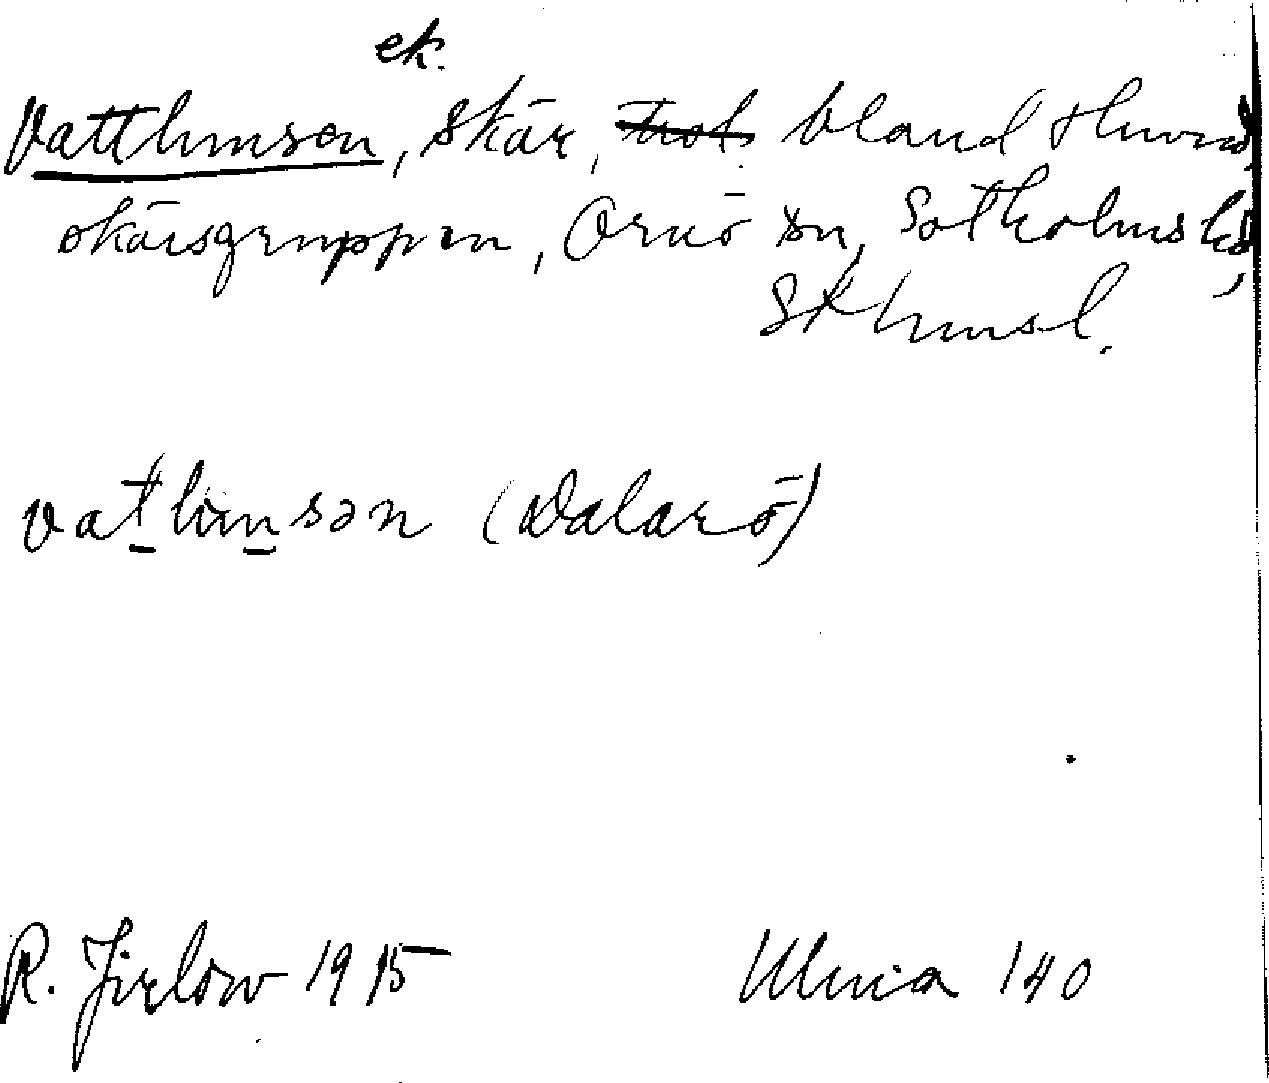 ek.
Vattlimsen, skär, bland Huvud
skärsgruppen, Ornö sn, Sotholms hd,
Sthmsl.
vatlimsən (Dalarö)
R. Jirlow 1915 Ulvia 140